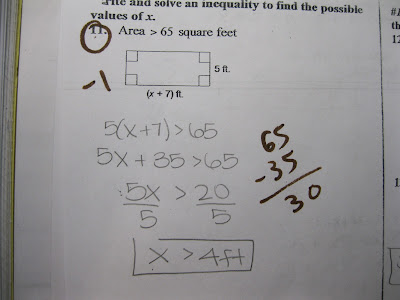 Write and solve an inequality to find the possible
values of x.
11. Area > 65 square feet
5 ft.
(x + 7) ft.
-1
5(x+7)>65
5x + 35 >65
5x > 20
5 5
x > 4ft
65
-35
30
12